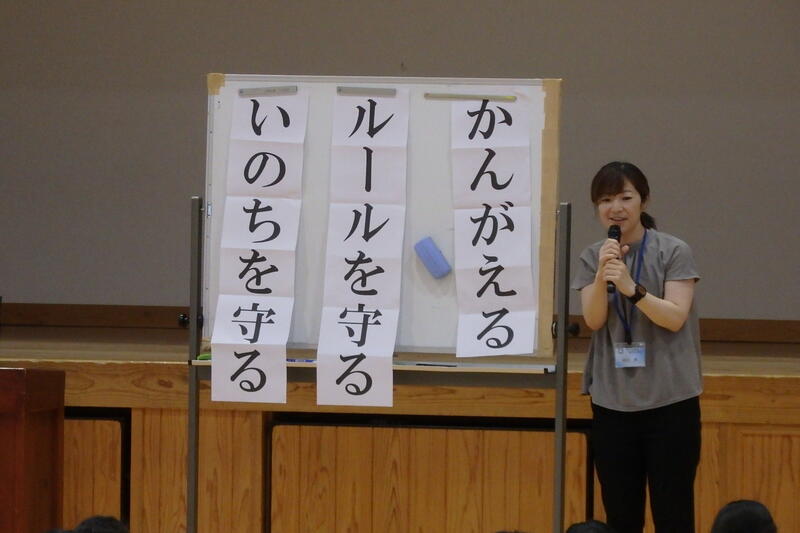 かんがえる
ルールを守る
いのちを守る